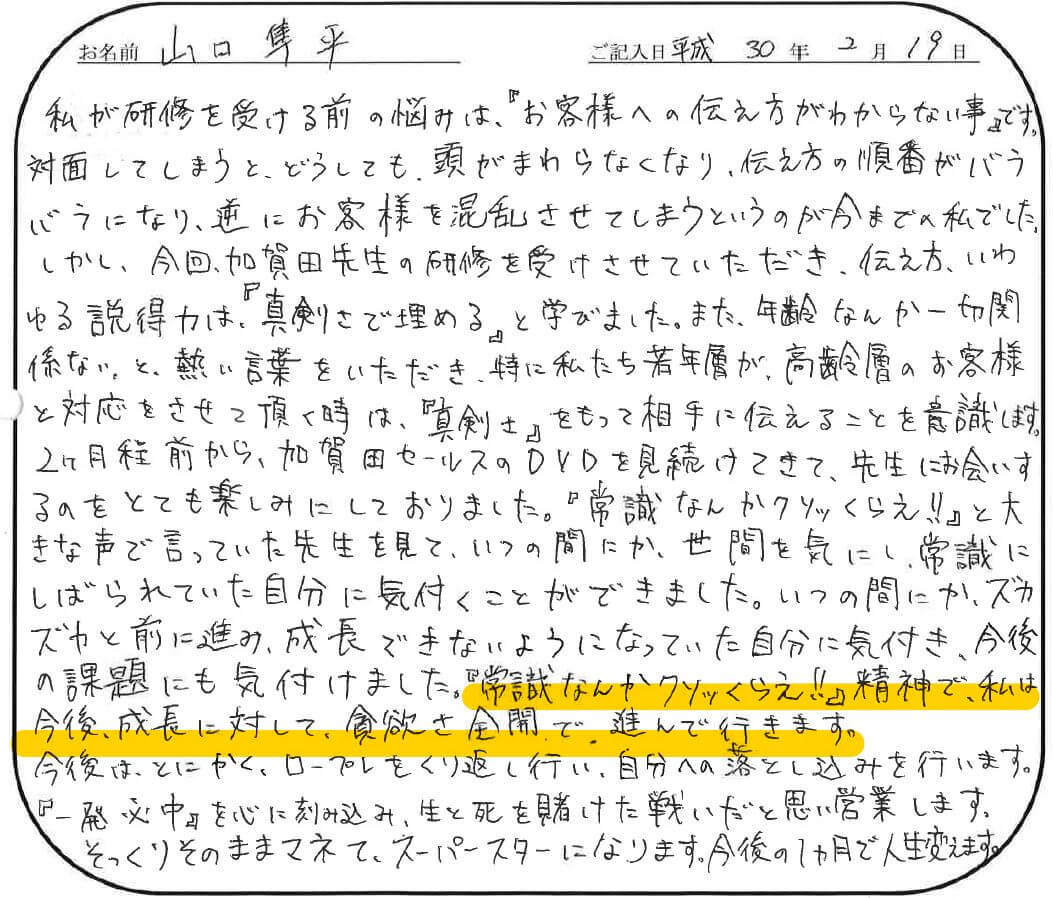 お名前 山口 隼平 ご記入日 平成 30 年 2 月 19 日
私が研修を受ける前の悩みは、『お客様への伝え方がわからない事』です。
対面してしまうと、どうしても、頭がまわらなくなり、伝え方の順番がバラ
バラになり、逆にお客様を混乱させてしまうというのが今までの私でした。
しかし、今回、加賀田先生の研修を受けさせていただき、伝え方、いわ
ゆる説得力は、『真剣さで埋める』と学びました。また、年齢なんか一切関
係ない。と、熱い言葉をいただき、特に私たち若年層が、高齢層のお客様
と対応をさせて頂く時は、『真剣さ』をもって相手に伝えることを意識します。
2ヶ月程前から、加賀田セールスのDVDを見続けてきて、先生にお会いす
るのをとても楽しみにしておりました。『常識なんかクソッくらえ!!』と大
きな声で言っていた先生を見て、いつの間にか、世間を気にし、常識に
しばられていた自分に気付くことができました。いつの間にか、ズカ
ズカと前に進み、成長できないようになっていた自分に気付き、今後
の課題にも気付けました。『常識なんかクソッくらえ!!』精神で、私は
今後、成長に対して、貪欲さ全開で、進んで行きます。
今後は、とにかく、ロープレをくり返し行い、自分への落とし込みを行います。
『一発必中』を心に刻み込み、生と死を賭けた戦いだと思い営業します。
そっくりそのままマネて、スーパースターになります。今後の1ヵ月で人生変えます。